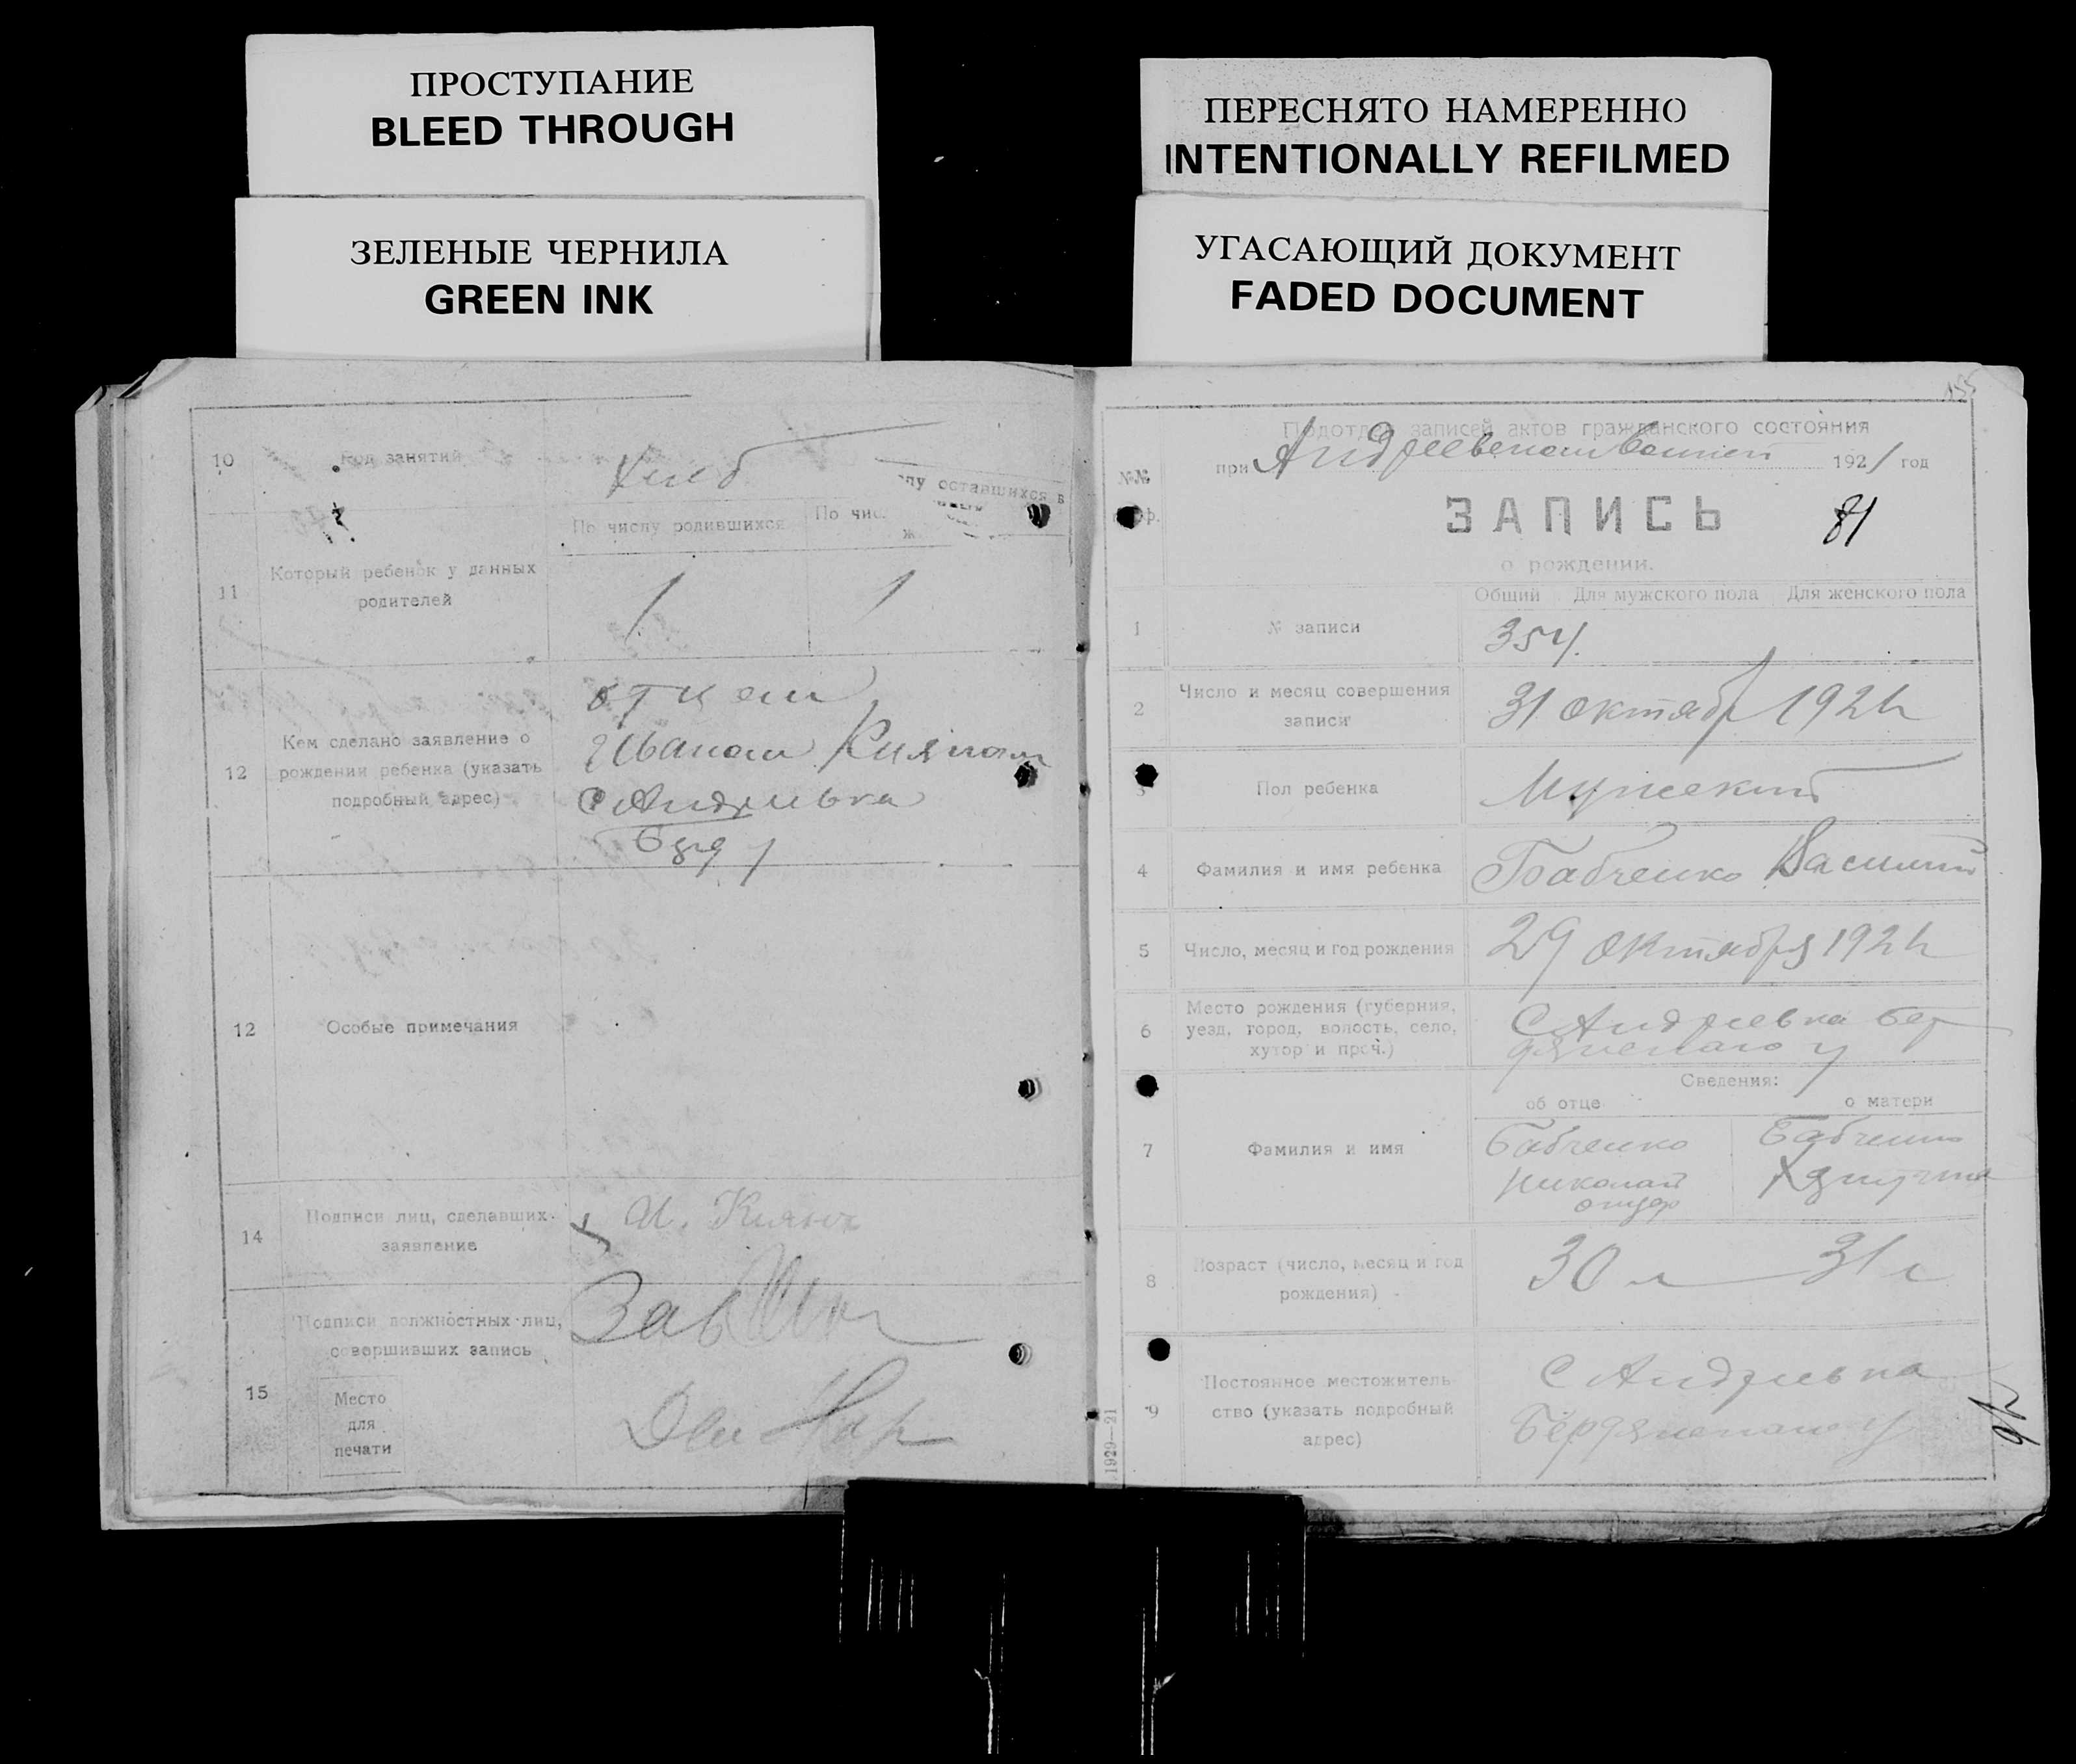 ПРОСТУПАНИЕ
BLEED THROUGH
ЗЕЛЕНЫЕ ЧЕРНИЛА
GREEN INK
ПЕРЕСНЯТО НАМЕРЕННО
INTENTIONALLY REFILMED
УГАСАЮЩИЙ ДОКУМЕНТ
FADED DOCUMENT
10
Род занятий
Хлеб
11
Который ребенок у данных
родителей
По числу родившихся
По чис
лу оставшихся в
1
1
12
Кем сделано заявление о
рождении ребенка (указать
подробный адрес)
Иваном
С Андреевка
12
Особые примечания
14
Подписи лиц, сделавших
заявление
И.
15
Подписи должностных лиц,
совершивших запись
Место
для
печати
Зав
155
Подотдел записей актов гражданского состояния
при 1921 год
№№
ЗАПИСЬ
81
о рождении.
Общий Для мужского пола Для женского пола
1
№ записи
354
2
Число и месяц совершения
записи
31 октябр
3
Пол ребенка
Мужской
4
Фамилия и имя ребенка
Бабченко Василий
5
Число, месяц и год рождения
29 октября
6
Место рождения (губерния,
уезд, город, волость, село,
хутор и проч.)
С Андреевка Бер
дянскаго у
Сведения:
об отце
о матери
7
Фамилия и имя
Бабченко
Николай
Бабченко
8
Возраст (число, месяц и год
рождения)
30 л
31 л
9
Постоянное местожитель
ство (указать подробный
адрес)
С Андреевка
Бердянскаго у
1929—21